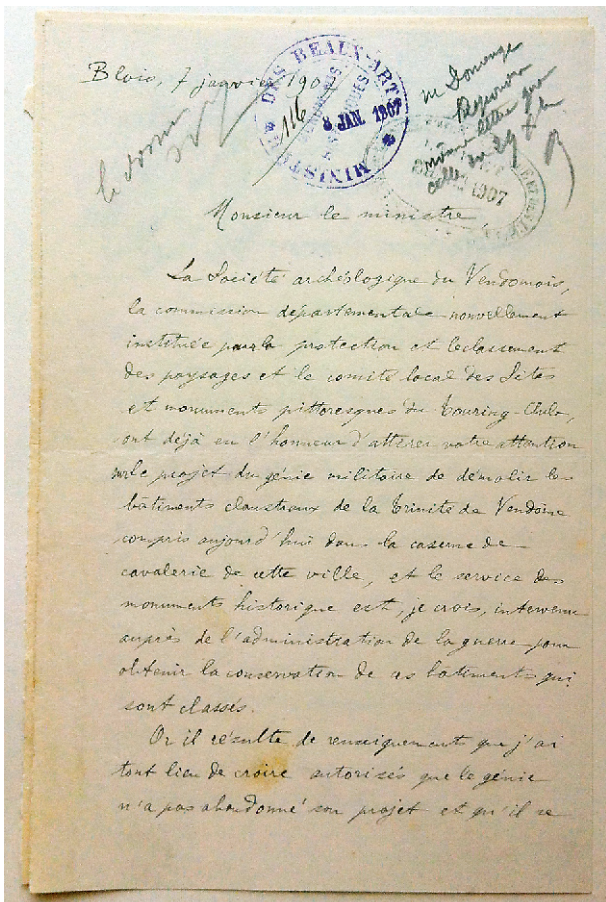 Blois, 7 janvier 1907
116
MINISTÈRE DES BEAUX-ARTS
8 JAN. 1907
M Domenge
Répondre
même lettre que
celle du 29 Xbre
1907
Monsieur le ministre,
La Société archéologique du Vendomois,
la commission départementale nouvellement
instituée pour la protection et le classement
des paysages et le comité local des Sites
et monuments pittoresques du Touring-Club,
ont déjà eu l'honneur d'attirer votre attention
sur le projet du génie militaire de démolir les
bâtiments claustraux de la Trinité de Vendôme
compris aujourd'hui dans la caserne de
cavalerie de cette ville, et le service des
monuments historique est, je crois, intervenu
auprès de l'administration de la guerre pour
obtenir la conservation de ces batiments qui
sont classés.
Or il résulte de renseignement que j'ai
tout lieu de croire autorisés que le génie
n'a pas abandonné son projet et qu'il se